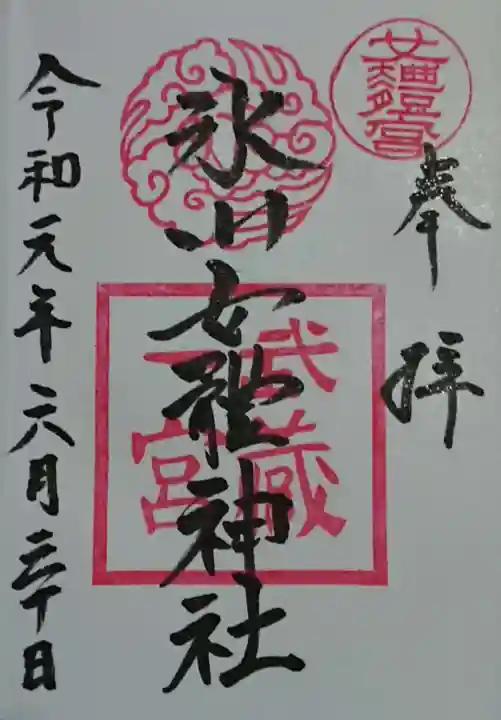 奉拝
氷川女體神社
武蔵
一宮
令和元年六月三十日